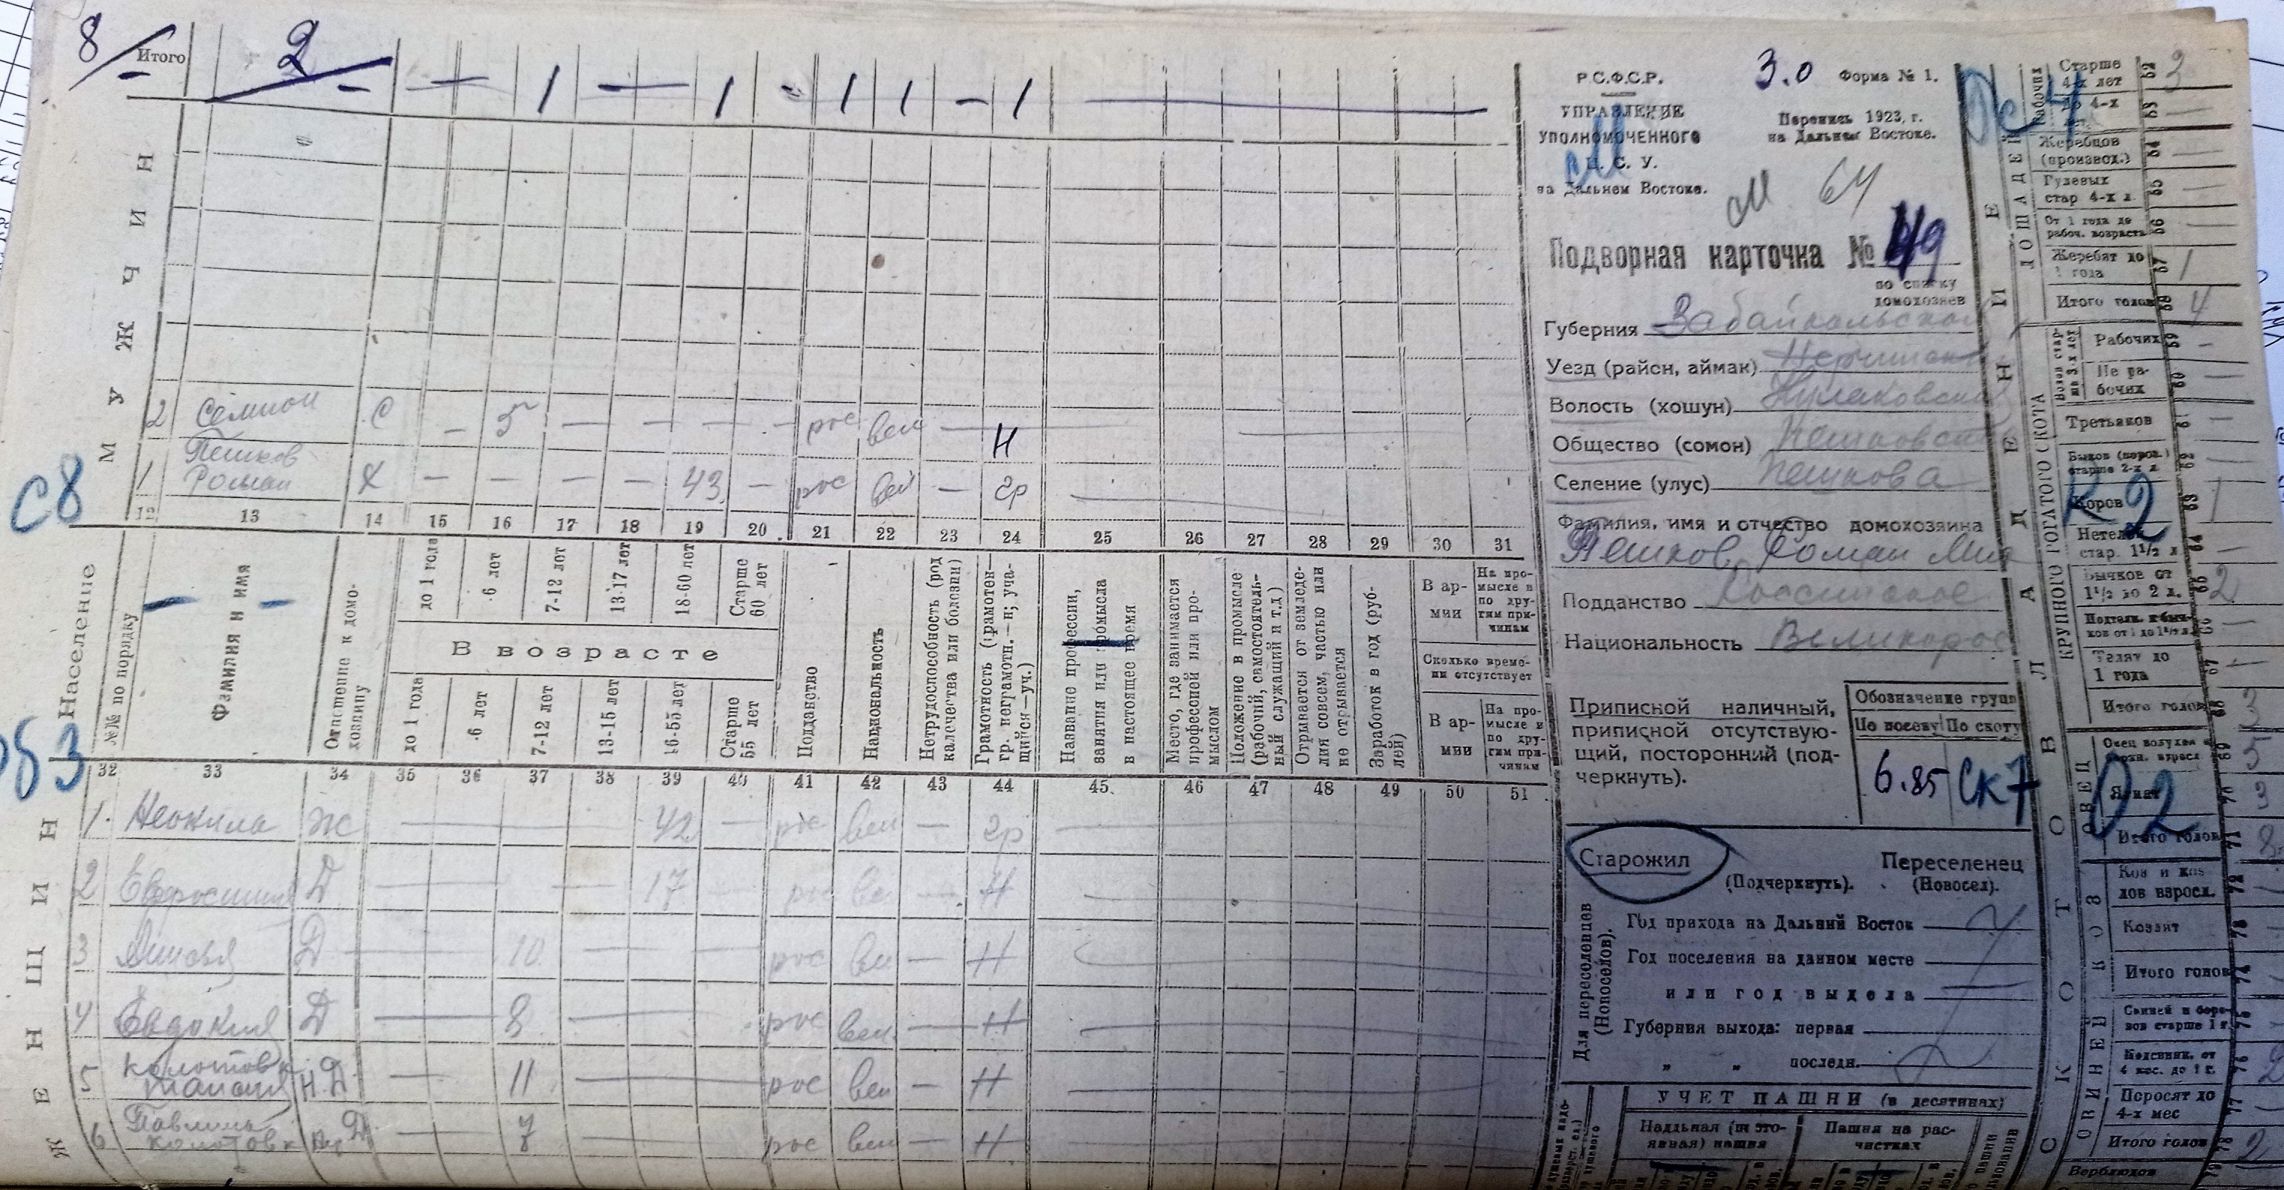 8/ Итого 2 - — - 1 — 1 - 1 1 - 1
МУЖЧИН
2 Семион С - 5 — — — - рос вел — Н
Пешков
1 Роман Х — — — — 43 — рос вел — гр
С8
12 13 14 15 16 17 18 19 20 21 22 23 24 25 26 27 28 29 30 31
Население
№№ по порядку
Фамилия и имя
Отношение к домохозяину
до 1 года
-6 лет
7-12 лет
13-17 лет
18-60 лет
Старше 60 лет
В возрасте
до 1 года
-6 лет
7-12 лет
13-15 лет
16-55 лет
Старше 55 лет
Подданство
Национальность
Нетрудоспособность (род калечества или болезни)
Грамотность (грамотен—гр. неграмотн.—н; учащийся—уч.)
Название профессии, занятия или промысла в настоящее время
Место, где занимается профессией или промыслом
Положение в промысле (рабочий, самостоятельный служащий и т.д)
Отрывается от земледелия совсем, частью или не отрывается
Заработок в год (рублей)
В армии
На промысле и по другим причинам
Сколько времени отсутствует
В армии
На промысле и по другим причинам
32 33 34 35 36 37 38 39 40 41 42 43 44 45 46 47 48 49 50 51
ЖЕНЩИН
1. Неонила Ж — — 42 — рос вел — гр
2 Евфросиния Д — — 17 рос вел — Н
3 Д — 10 — — рос вел — Н
4 Евдокия Д — 8 — — рос вел — Н
5 Таисия Н.Д — 11 — — рос вел — Н
6 Д — 7 — — рос вел — Н
Р.С.Ф.С.Р.
3.0 Форма № 1.
УПРАВЛЕНИЕ
УПОЛНОМОЧЕННОГО
Ц. С. У.
на Дальнем Востоке.
Перепись 1923, г.
на Дальнем Востоке.
М 64
Подворная карточка № 49
по списку
домохозяев
Губерния Забайкальской
Уезд (район, аймак)
Волость (хошун)
Общество (сомон) Пешковское
Селение (улус) Пешкова
Фамилия, имя и отчество домохозяина
Пешков Роман
Подданство Российское
Национальность Великорос
Приписной наличный,
приписной отсутствующий, посторонний (подчеркнуть).
Обозначение групп
По посеву По скоту
6.85 Ск7
Старожил Переселенец
(Подчеркнуть). (Новосел).
Для переселенцев (Новоселов).
Год прихода на Дальний Восток
Год поселения на данном месте
или год выдела
Губерния выхода: первая
" " последн.
УЧЕТ ПАШНИ (в десятинах)
Надельная (по этоявная) пашня
Пашня на расчистках
СКОТОВЛАДЕНИЕ
ЛОШАДЕЙ
Рабочих
Старше 4-х лет 52 3
53
Жеребцов (производ.) 54
Гулевых стар 4-х л. 55
От 1 года до рабоч. возраста 56
Жеребят до 1 года 57 1
Итого голов 58 4
КРУПНОГО РОГАТОГО СКОТА
Рабочих 59
Не рабочих 60
Третьяков 61
62
Коров 63 1
К2
Нетелей стар. 1½ л 64
Бычков от 1½ до 2 л. 65 2
66
Телят до 1 года 67
Итого голов 68 3
ОВЕЦ
69 5
Ягнят 70 3
О2
Итого голов 71 8
КОЗ
Коз и козлов взросл. 72
Козлят 73
Итого голов 74
СВИНЕЙ
Свиней и боровов старше 1 г. 75
Подсвинк. от 4 мес. до 1 г. 76 2
Поросят до 4-х мес 77
Итого голов 78 2
Верблюдов 79